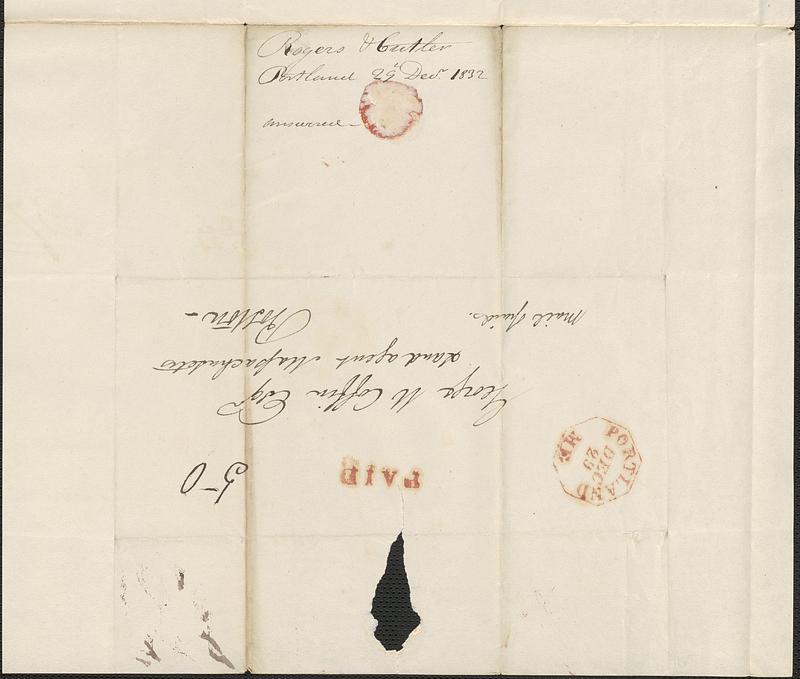 Rogers & Cutler
Portland 29 Dec. 1832
answered —
Mail paid.
George W Coffin Esqr
Land agent Massachusetts
Boston —
50
PAID
PORTLAND ME
DEC
29